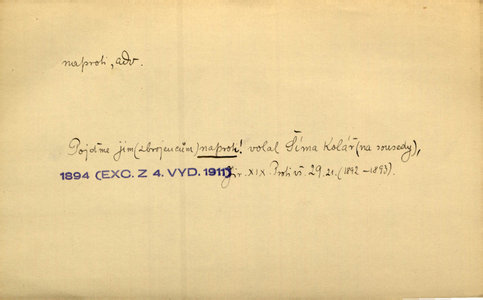 naproti, adv.
Pojďme jim (zbrojencům) naproti! volal Šíma Kolář (na sousedy),
1894 (EXC. Z 4. VYD. 1911) Jir. XIX. Proti vš. 29. 21. (1892–1893).